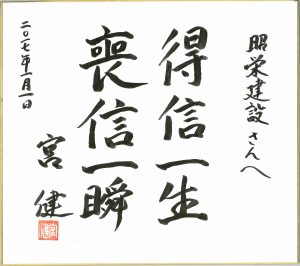 昭栄建設さんへ
得信一生
喪信一瞬
二〇一七年一月一日
宮健